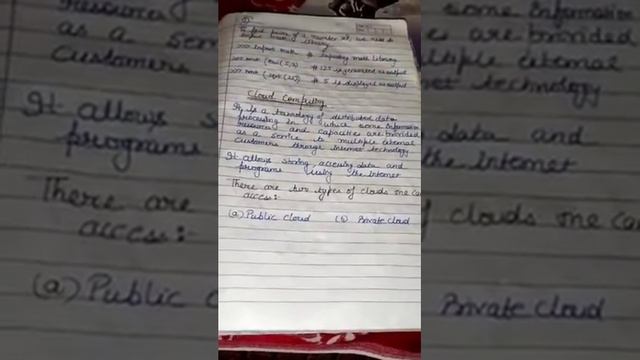 To find power of a number etc, we need to
import math library
>>> import math # Importing math library
>>> math.pow(5,3) # 125 is generated as output
>>> math.sqrt(25) # 5 is displayed as output
Cloud Computing
It is a technology of distributed data
processing in which some Information
resources and capacities are provided
as a service to multiple external
customers through Internet technology
It allows storing, accessing data and
programs using the Internet
There are two types of clouds one can
access:-
(a) Public cloud (b) Private cloud